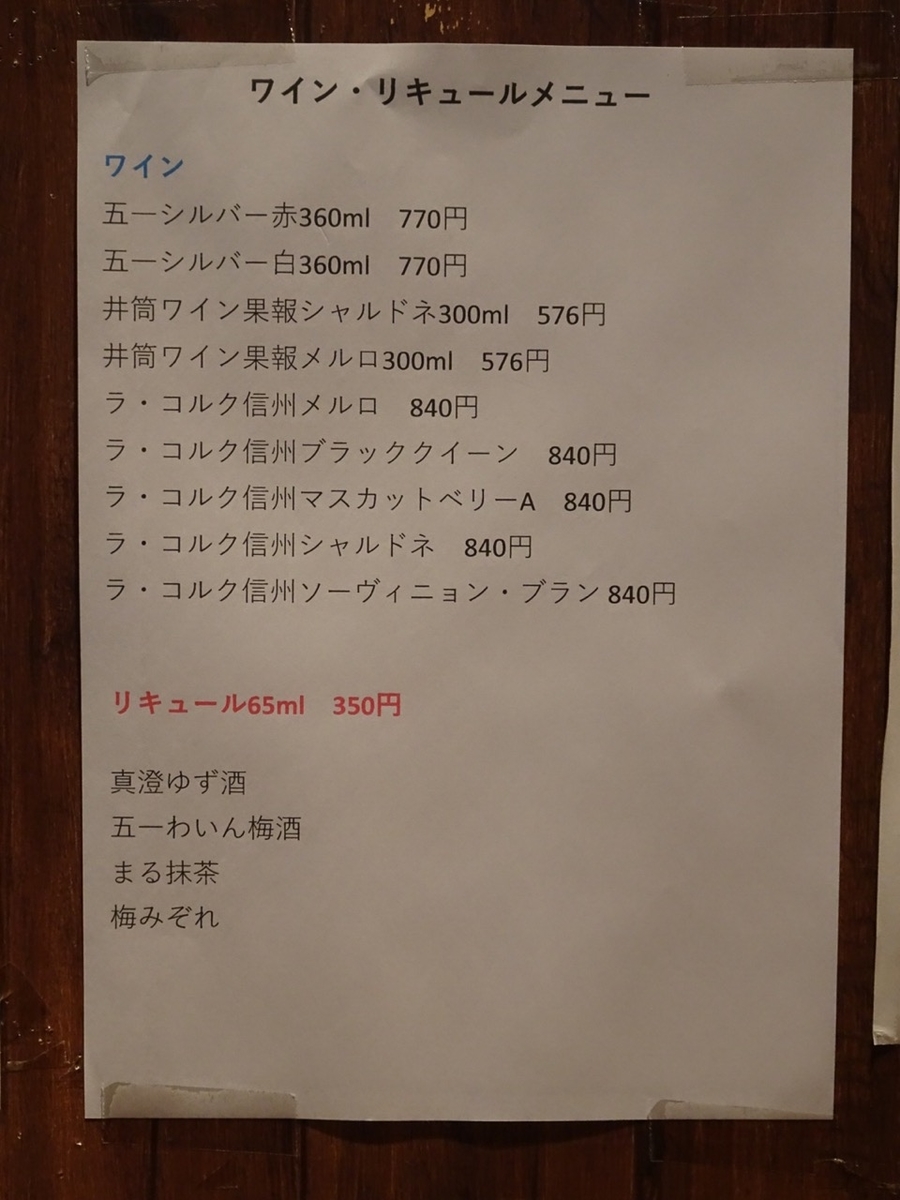 ワイン・リキュールメニュー
ワイン
五一シルバー赤360ml　770円
五一シルバー白360ml　770円
井筒ワイン果報シャルドネ300ml　576円
井筒ワイン果報メルロ300ml　576円
ラ・コルク信州メルロ　840円
ラ・コルク信州ブラッククイーン　840円
ラ・コルク信州マスカットベリーA　840円
ラ・コルク信州シャルドネ　840円
ラ・コルク信州ソーヴィニョン・ブラン 840円
リキュール65ml　350円
真澄ゆず酒
五一わいん梅酒
まる抹茶
梅みぞれ